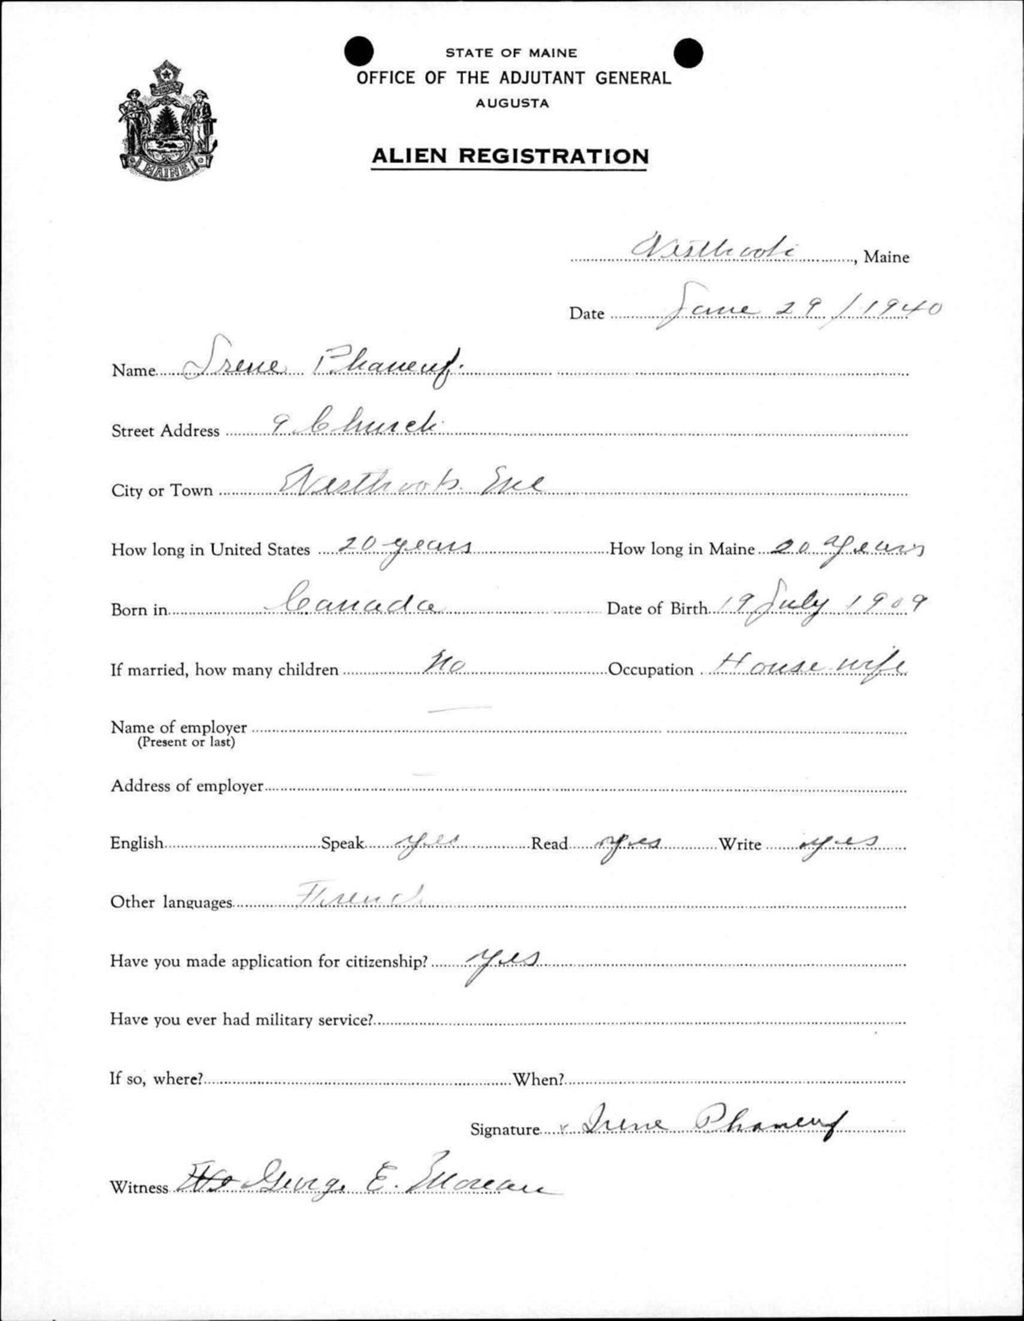 STATE OF MAINE
OFFICE OF THE ADJUTANT GENERAL
AUGUSTA
ALIEN REGISTRATION
MAINE
Westbrook, Maine
Date June 29/1940
Name Irene Phaneuf.
Street Address 9 Church
City or Town Westbrook Me
How long in United States 20 years How long in Maine 20 years
Born in Canada Date of Birth 19 July 1909
If married, how many children No Occupation House wife
Name of employer —
(Present or last)
Address of employer —
English Speak yes Read yes Write yes
Other languages French
Have you made application for citizenship? yes
Have you ever had military service?
If so, where? When?
Signature x Irene Phaneuf
Witness George E. Moreau